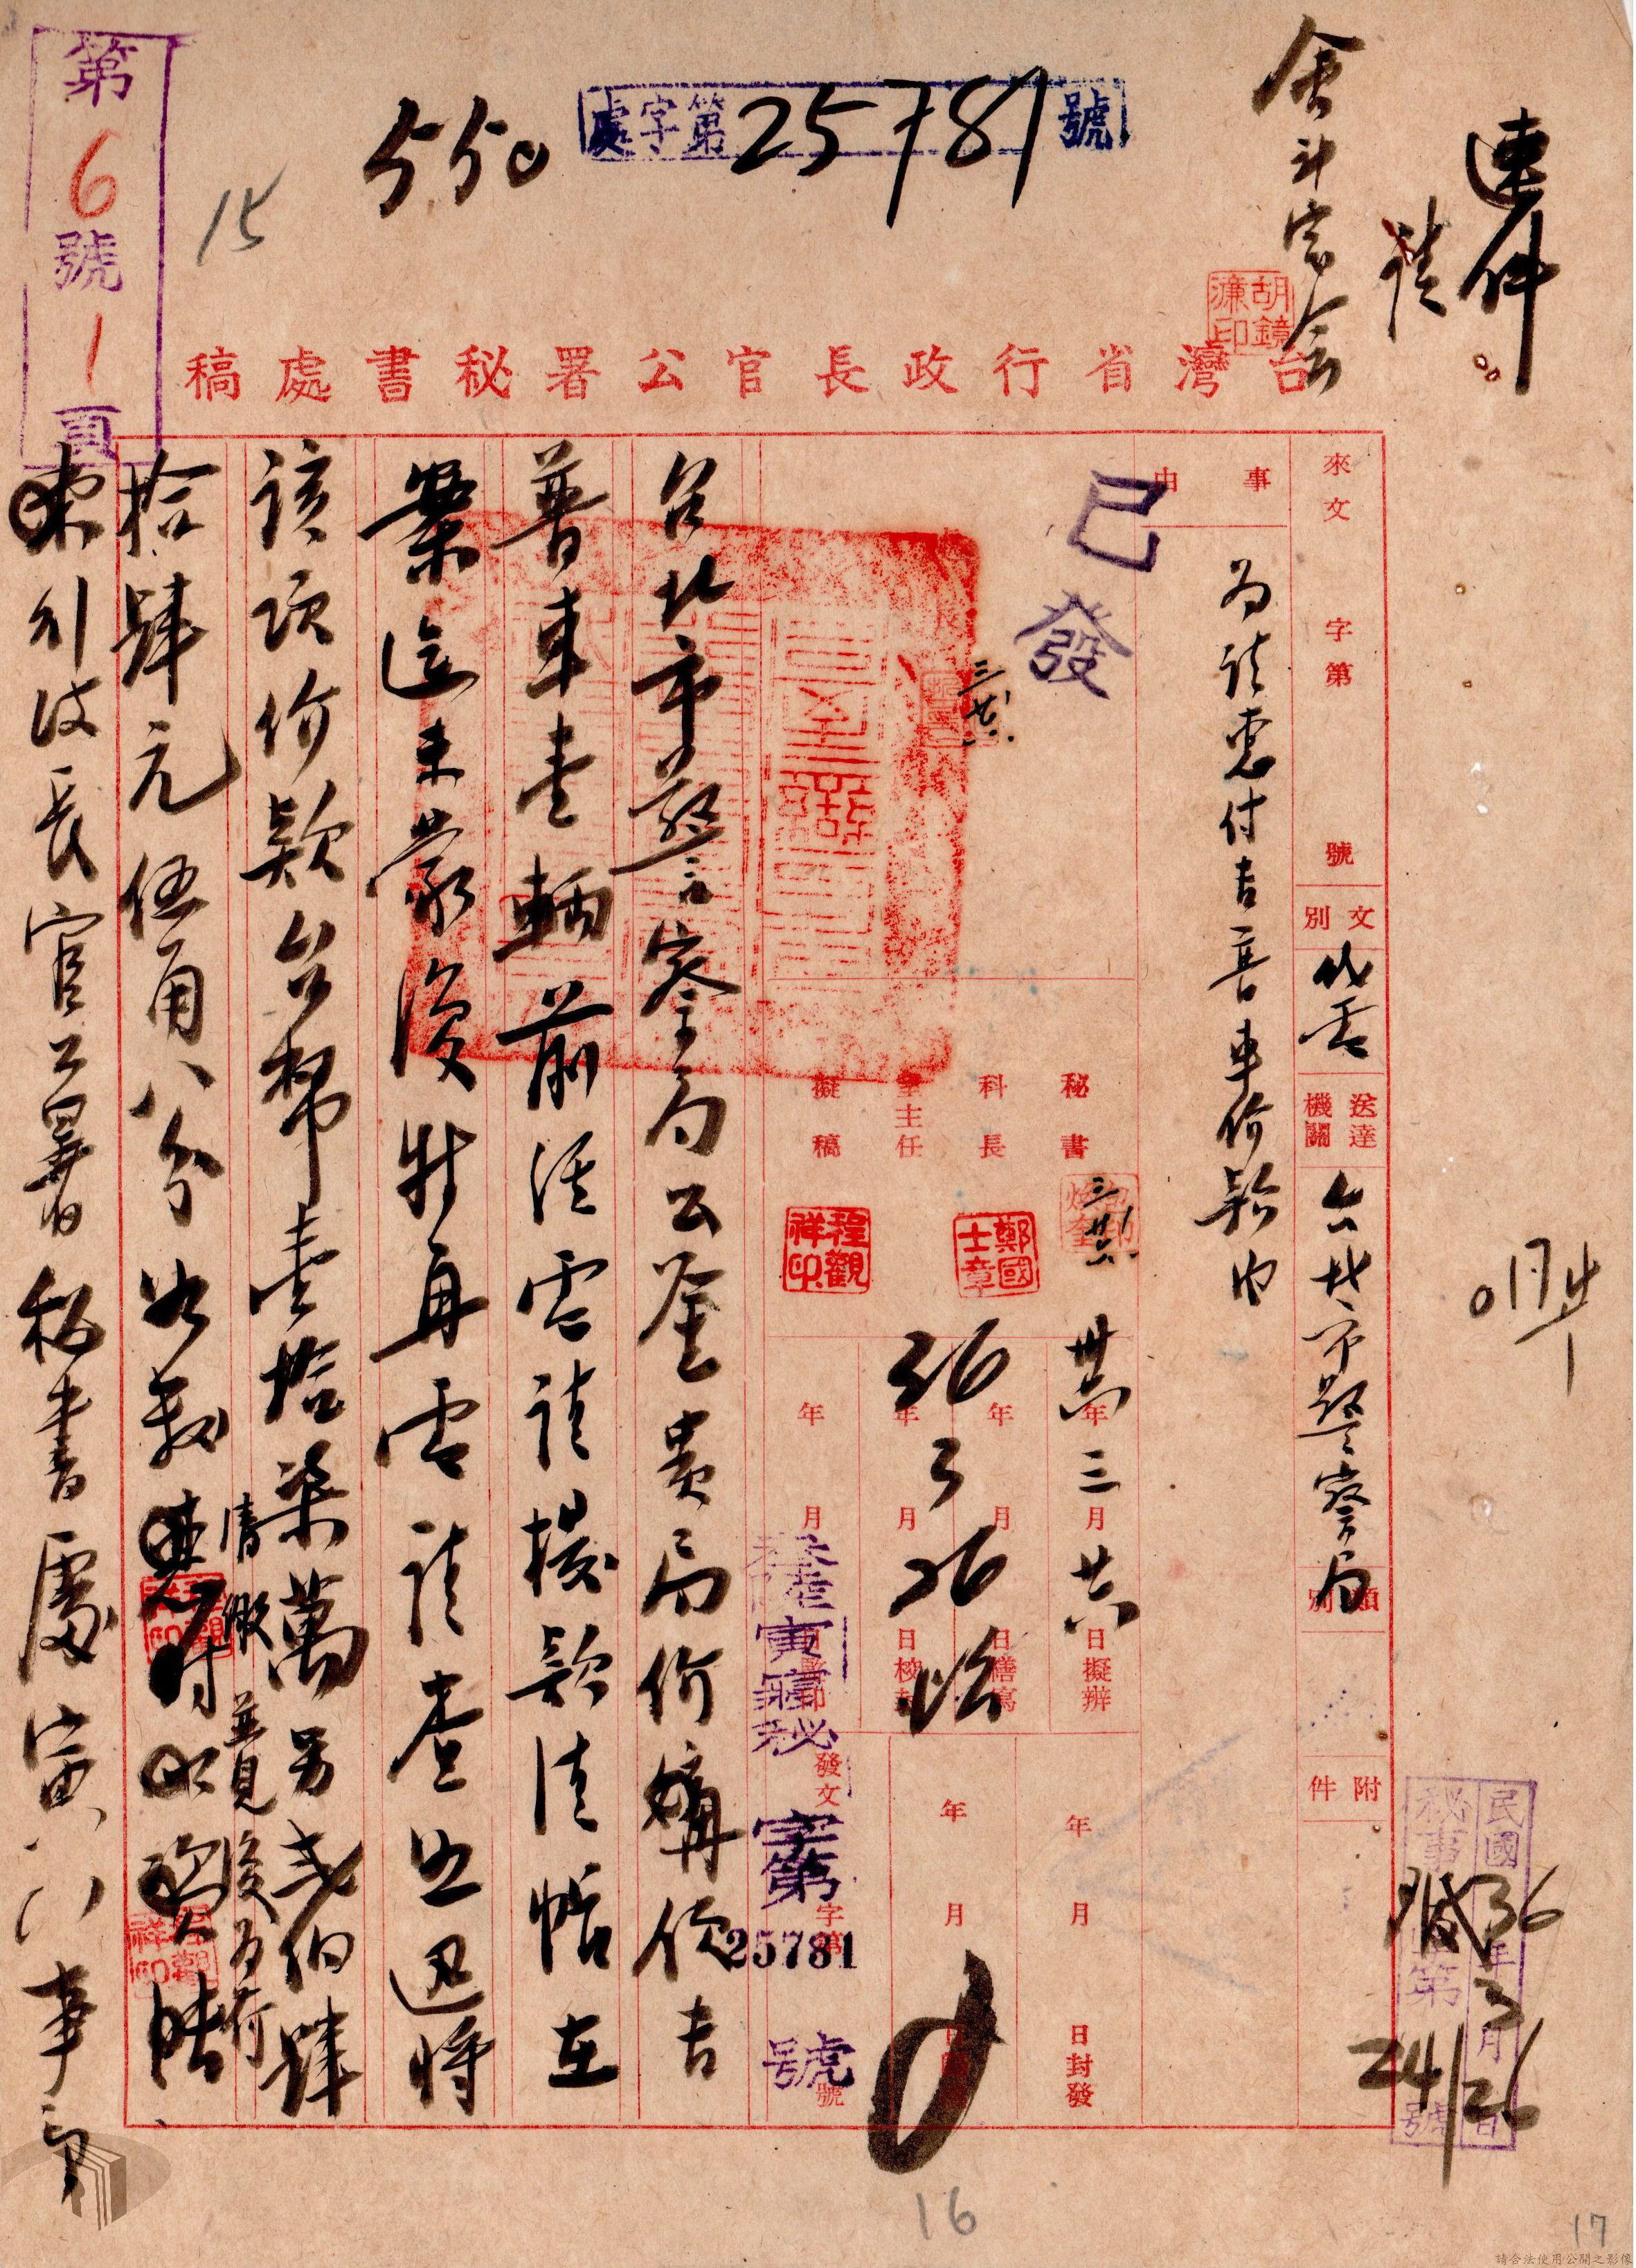 速件
請
會計室會
胡鏡濂印
處字第25781號
550
15
第6號1頁
台灣省行政長官公署秘書處稿
來文 字第 號
文別 代電
送達機關 台北市警察局
類別
附件
事由 為請惠付吉普車價款由
已發
秘書
科長
室主任
擬稿
三廿六
三廿六
鄭國士章
程觀祥印
卅六年三月廿六日擬辦
年 月 日繕寫
36年3月26日校對
年 月 日蓋印
年 月 日封發
參陸寅宥秘
發文 字第25781號
台北市警察局公鑒貴局價購儎吉
普車壹輛前經電請撥款清帳在
案迄未蒙復特再電請查照迅將
該項價款台幣壹拾柒萬另貳佰肆
拾肆元伍角八分如數
清繳並見復為荷
行政長官公署秘書處寅 事印
民國36年3月26日
秘事 第 號
24126
16
17
請合法使用公開之影像